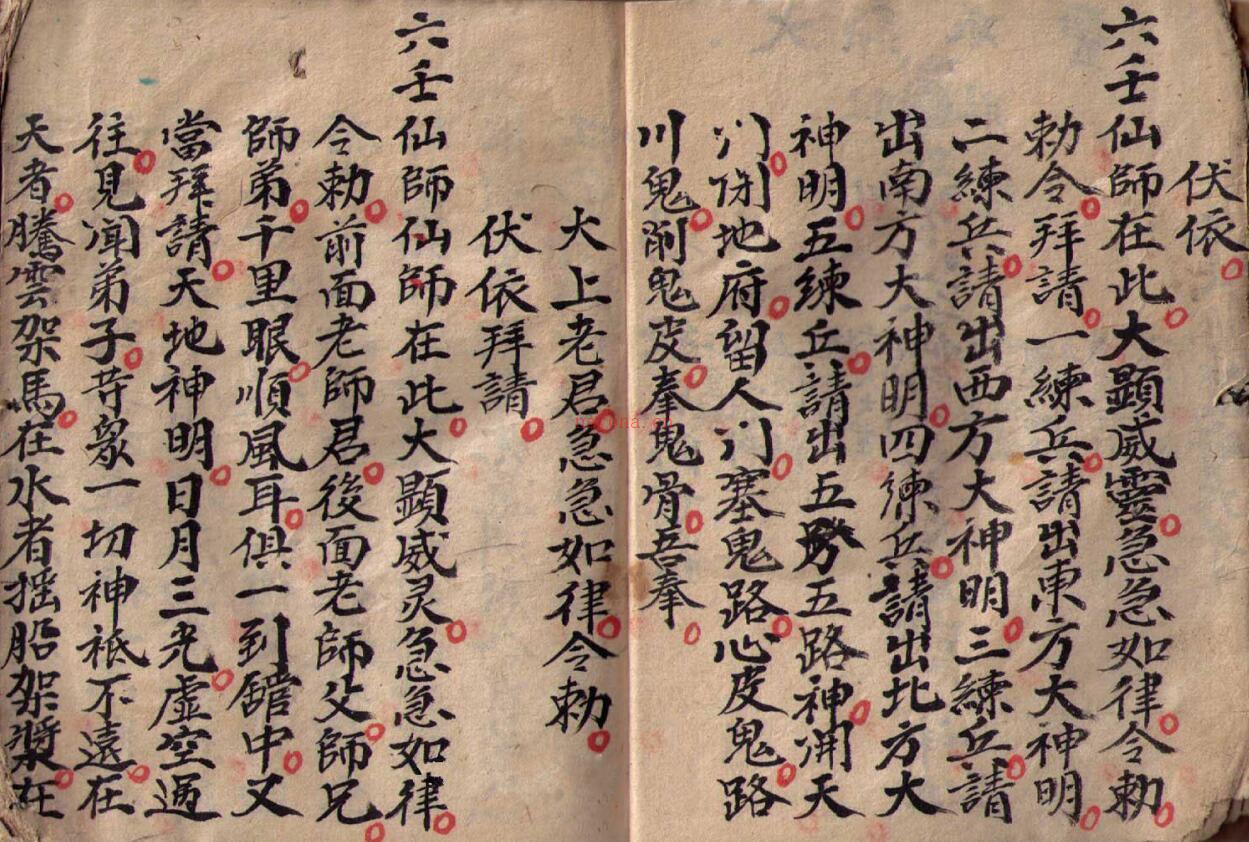 伏依
六壬仙師在此大顕威靈急急如律令勅
勅令拜請一練兵請出東方大神明
二練兵請出西方大神明三練兵請
出南方大神明四練兵請出北方大
神明五練兵請出五方五路神開天
门閉地府留人门塞鬼路心皮鬼路
川鬼削鬼皮奉鬼骨吾奉
大上老君急急如律令勅
伏依拜請
六壬仙師仙師在此大顕威灵急急如律
令勅前面老師君後面老師父師兄
師弟千里眼順風耳俱一到舘中又
當拜請天地神明日月三光虚空過
往見闻弟子等衆一切神祗不遠在
天者騰雲架馬在水者摇船架漿在